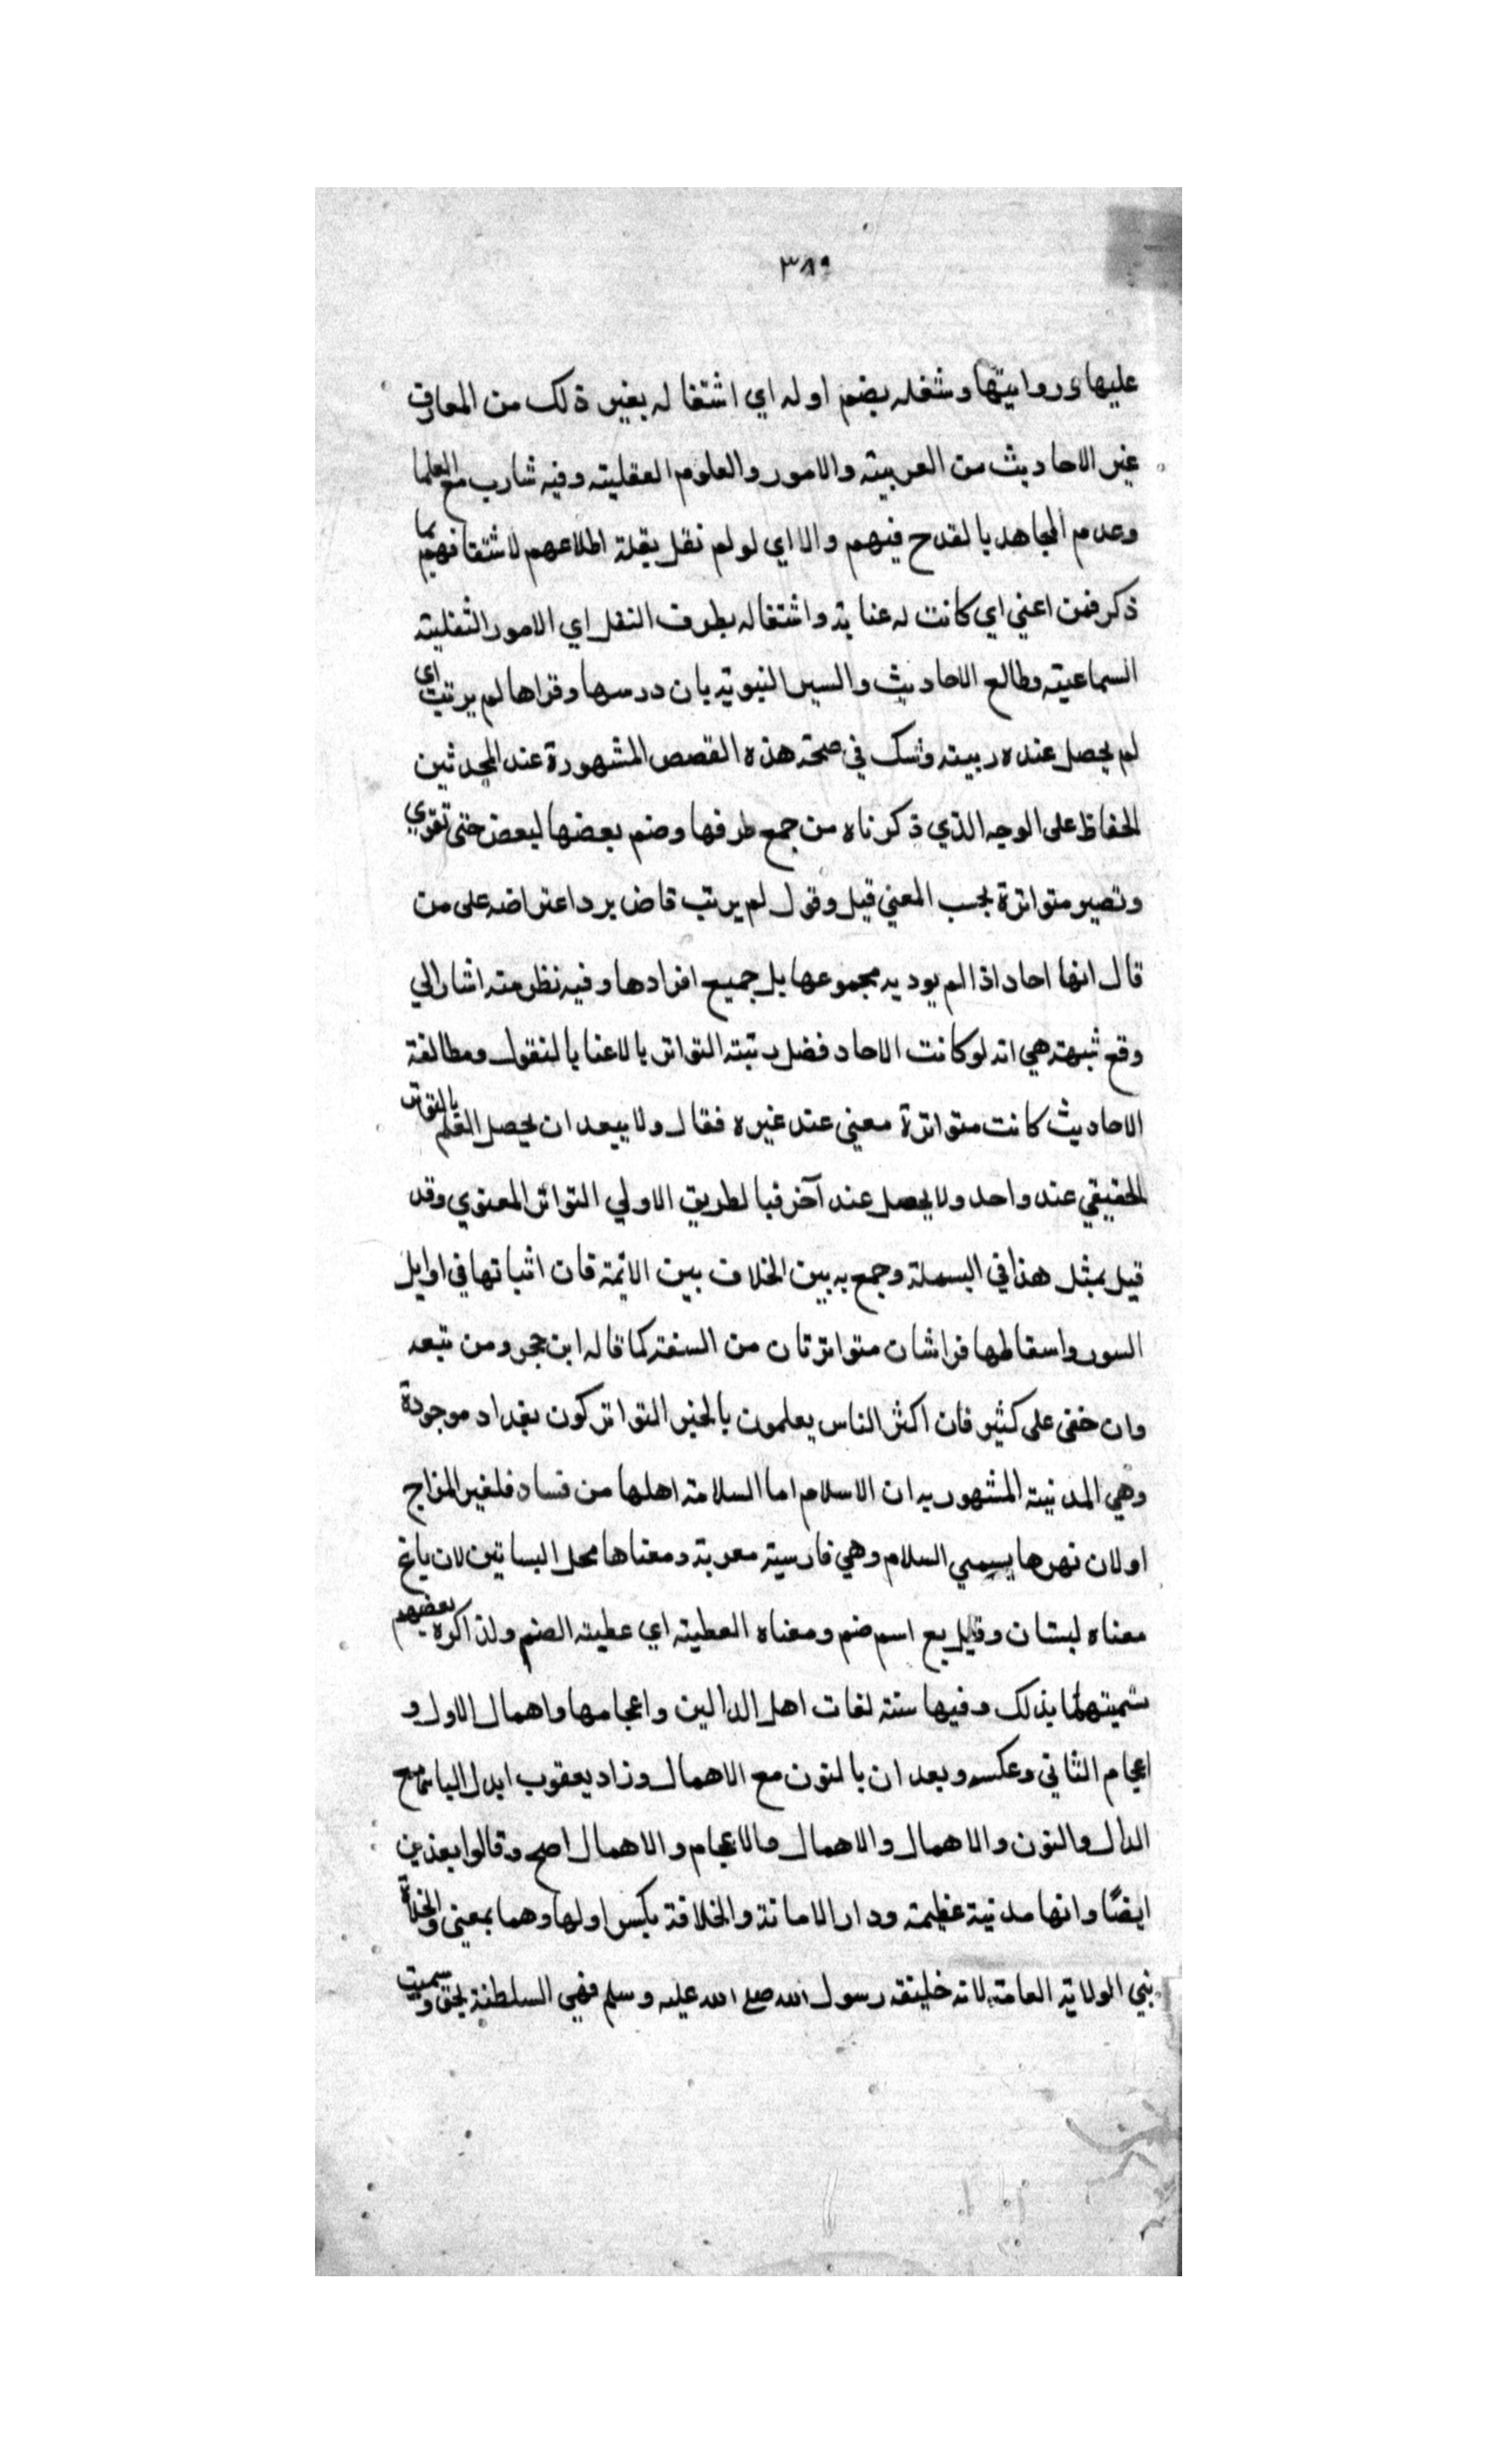 ٣٨٩
عليها وروايتها وشغله بضم اوله اي اشتغاله بغير ذلك من المعارف
غير الاحاديث من العربية والامور والعلوم العقلية وفيه شارب مع العلما
وعدم المجاهد بالقدح فيهم والا اي لو لم نقل بقلة اطلاعهم لاشتغافهم بما
ذكر فمن اعني اي كانت له عناية واشتغاله بطرف النقل اي الامور النقلية
السماعية وطالع الاحاديث والسير النبوية بان درسها وقراها لم يرتب اي
لم يحصل عنده ريبة وشك في صحة هذه القصص المشهورة عند المحدثين
الحفاظ على الوجه الذي ذكرناه من جمع طرفها وضم بعضها لبعض حتى تقوي
وتصير متواترة بحسب المعني قيل وقول لم يرتب قاض يرد اعتراضه على من
قال انها احاد اذا لم يود به مجموعها بل جميع افرادها وفيه نظر منه اشار الي
وقع شبهة هي انه لو كانت الاحاد فضل رتبة التواتر بالاعنا بالنقول ومطالعة
الاحاديث كانت متواترة معني عند غيره فقال ولا يبعد ان يحصل العلم بالتواتر
الحقيقي عند واحد ولا يحصل عند آخر فبالطريق الاولي التواتر المعنوي وقد
قيل بمثل هذا في البسملة وجمع به بين الخلاف بين الائمة فان اثباتها في اوايل
السور واسقاطها قراشان متواترتان من السنة كما قاله ابن حجر ومن تبعه
وان خفى على كثير فان اكثر الناس يعلمون بالخبر التواتر كون بغداد موجودة
وهي المدنية المشهور بدان الاسلام اما السلامة اهلها من فساد فلغير المزاج
او لان نهرها يسمي السلام وهي فارسية معربة ومعناها محل البساتين لان باغ
معناه لبستان وقيل بع اسم صنم ومعناه العطية اي عطية الصنم ولذا كره بعضهم
تسميتها بذلك وفيها ستة لغات اهل الدالين واعجامها واهمال الاول و
اعجام الثاني وعكسه وبعدان بالنون مع الاهمال وزاد يعقوب ابدل البا مع
الدال والنون والاهمال والاهمال والاعجام والاهمال اصح وقالوا بغذين
ايضًا وانها مدنية عظيمة ودار الامانة والخلافة بكسر اولها وهما بمعنى والخلافة
بني الولاية العامة لانه خليفة رسول الله صلى الله عليه وسلم فهي السلطنة بحق وسميت